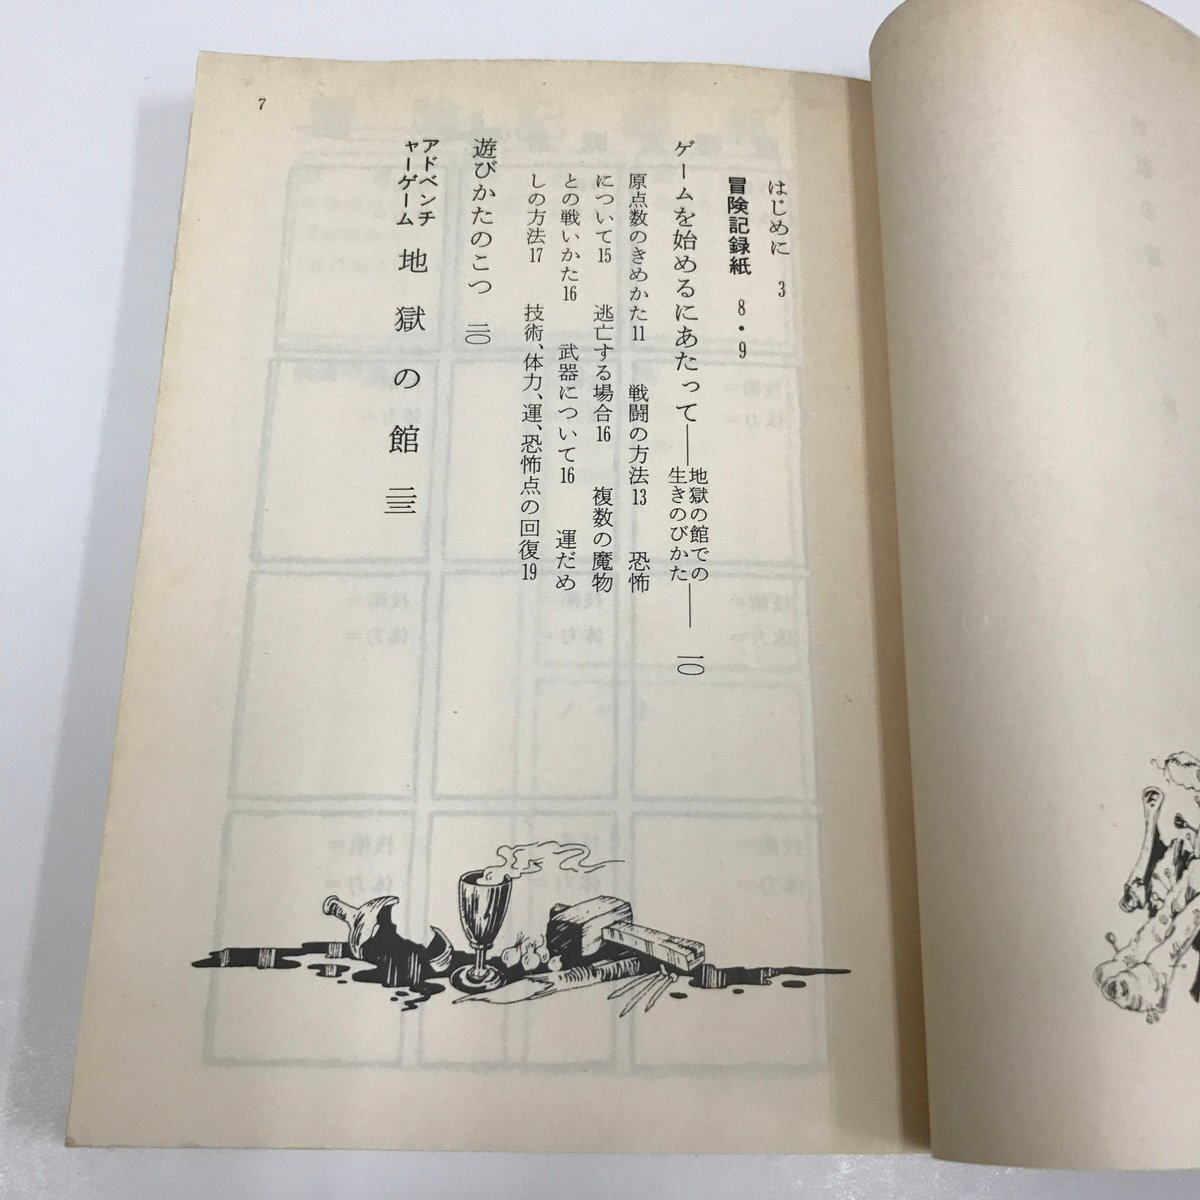 7
はじめに 3
冒険記録紙 8・9
ゲームを始めるにあたって――地獄の館での生きのびかた―― 一〇
原点数のきめかた11 戦闘の方法13 恐怖
について15 逃亡する場合16 複数の魔物
との戦いかた16 武器について16 運だめ
しの方法17 技術、体力、運、恐怖点の回復19
遊びかたのこつ 二〇
アドベンチャーゲーム 地獄の館 二三